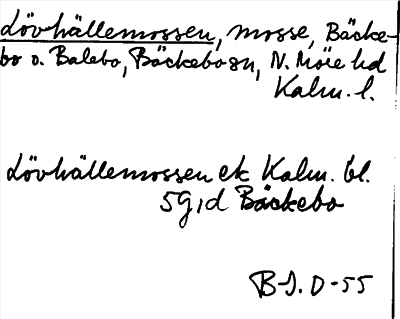 Lövhällemossen, mosse, Bäcke-
bo o. Balebo, Bäckebo sn, N. Möre hd
Kalm. l.
Lövhällemossen ek Kalm. bl.
5g,d Bäckebo
B-J. D-55